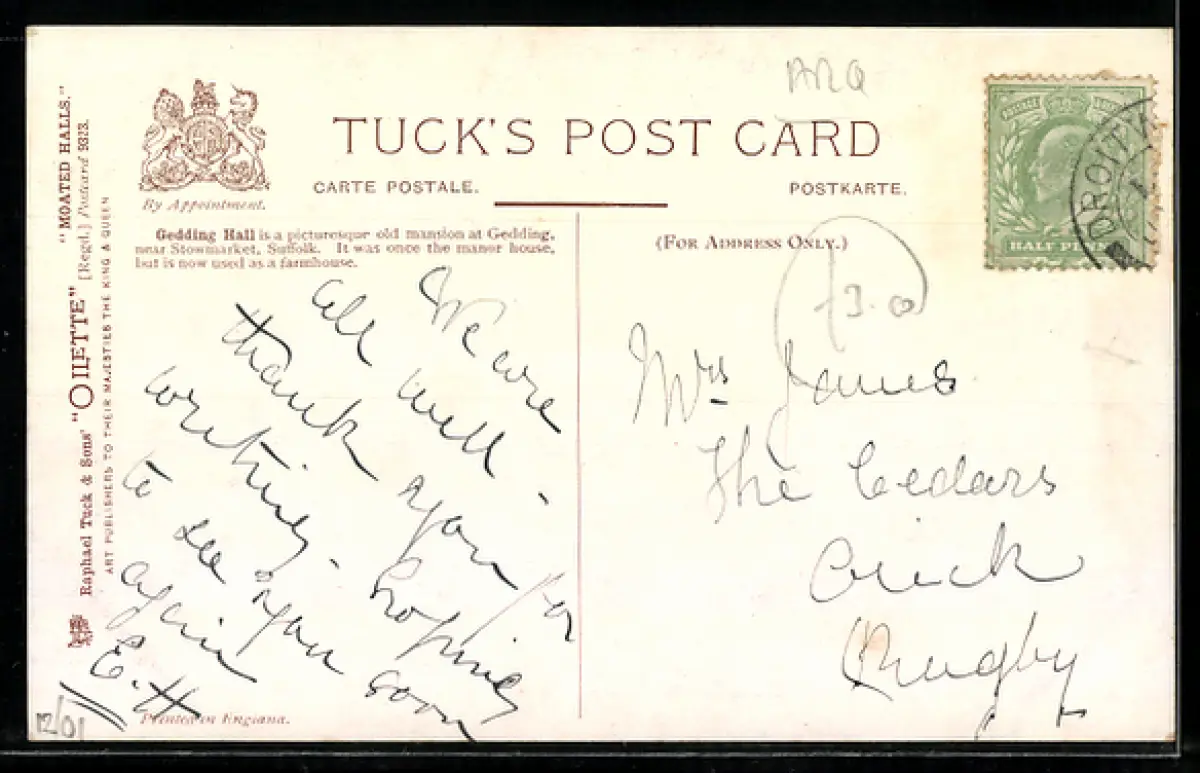 "MOATED HALLS."
Raphael Tuck & Sons' "OILETTE" [Regd.] Postcard 9323.
ART PUBLISHERS TO THEIR MAJESTIES THE KING & QUEEN
By Appointment.
TUCK'S POST CARD
CARTE POSTALE.
POSTKARTE.
Gedding Hall is a picturesque old mansion at Gedding,
near Stowmarket, Suffolk. It was once the manor house,
but is now used as a farmhouse.
We are
all well -
thank you for
writing - hoping
to see you soon
again
E.H
Printed in England.
12/01
(FOR ADDRESS ONLY.)
Mrs James
The Cedars
Crick
Rugby
HALF PENNY
DROITW